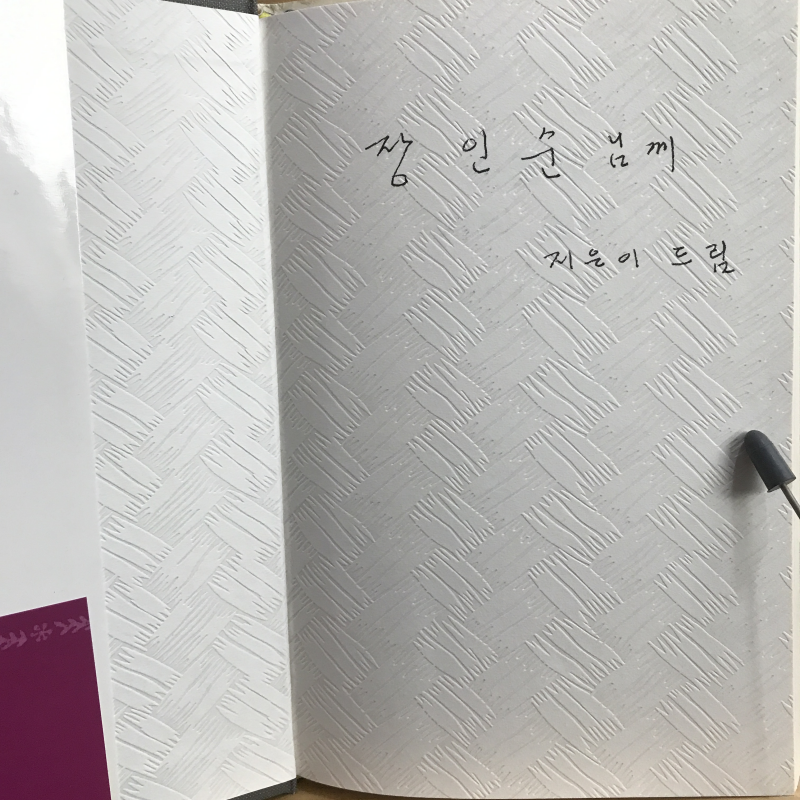 장 인 순 님께
지은이 드림